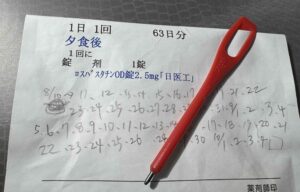 1日 1回 63日分
夕食後
1回に
錠 剤 1錠
ロスバスタチンOD錠2.5mg「日医工」
8/10 11. 12. 13. 14. 15. 16. 17. 20. 21. 22
23. 24. 25. 26. 27. 28. 2. 3. 4
5. 6. 7. 8. 9. 10. 11. 12. 13. 17. 18. 19. 21
22 23. 24. 25. 26 30 10/1. 2. 3. 4
薬剤師印